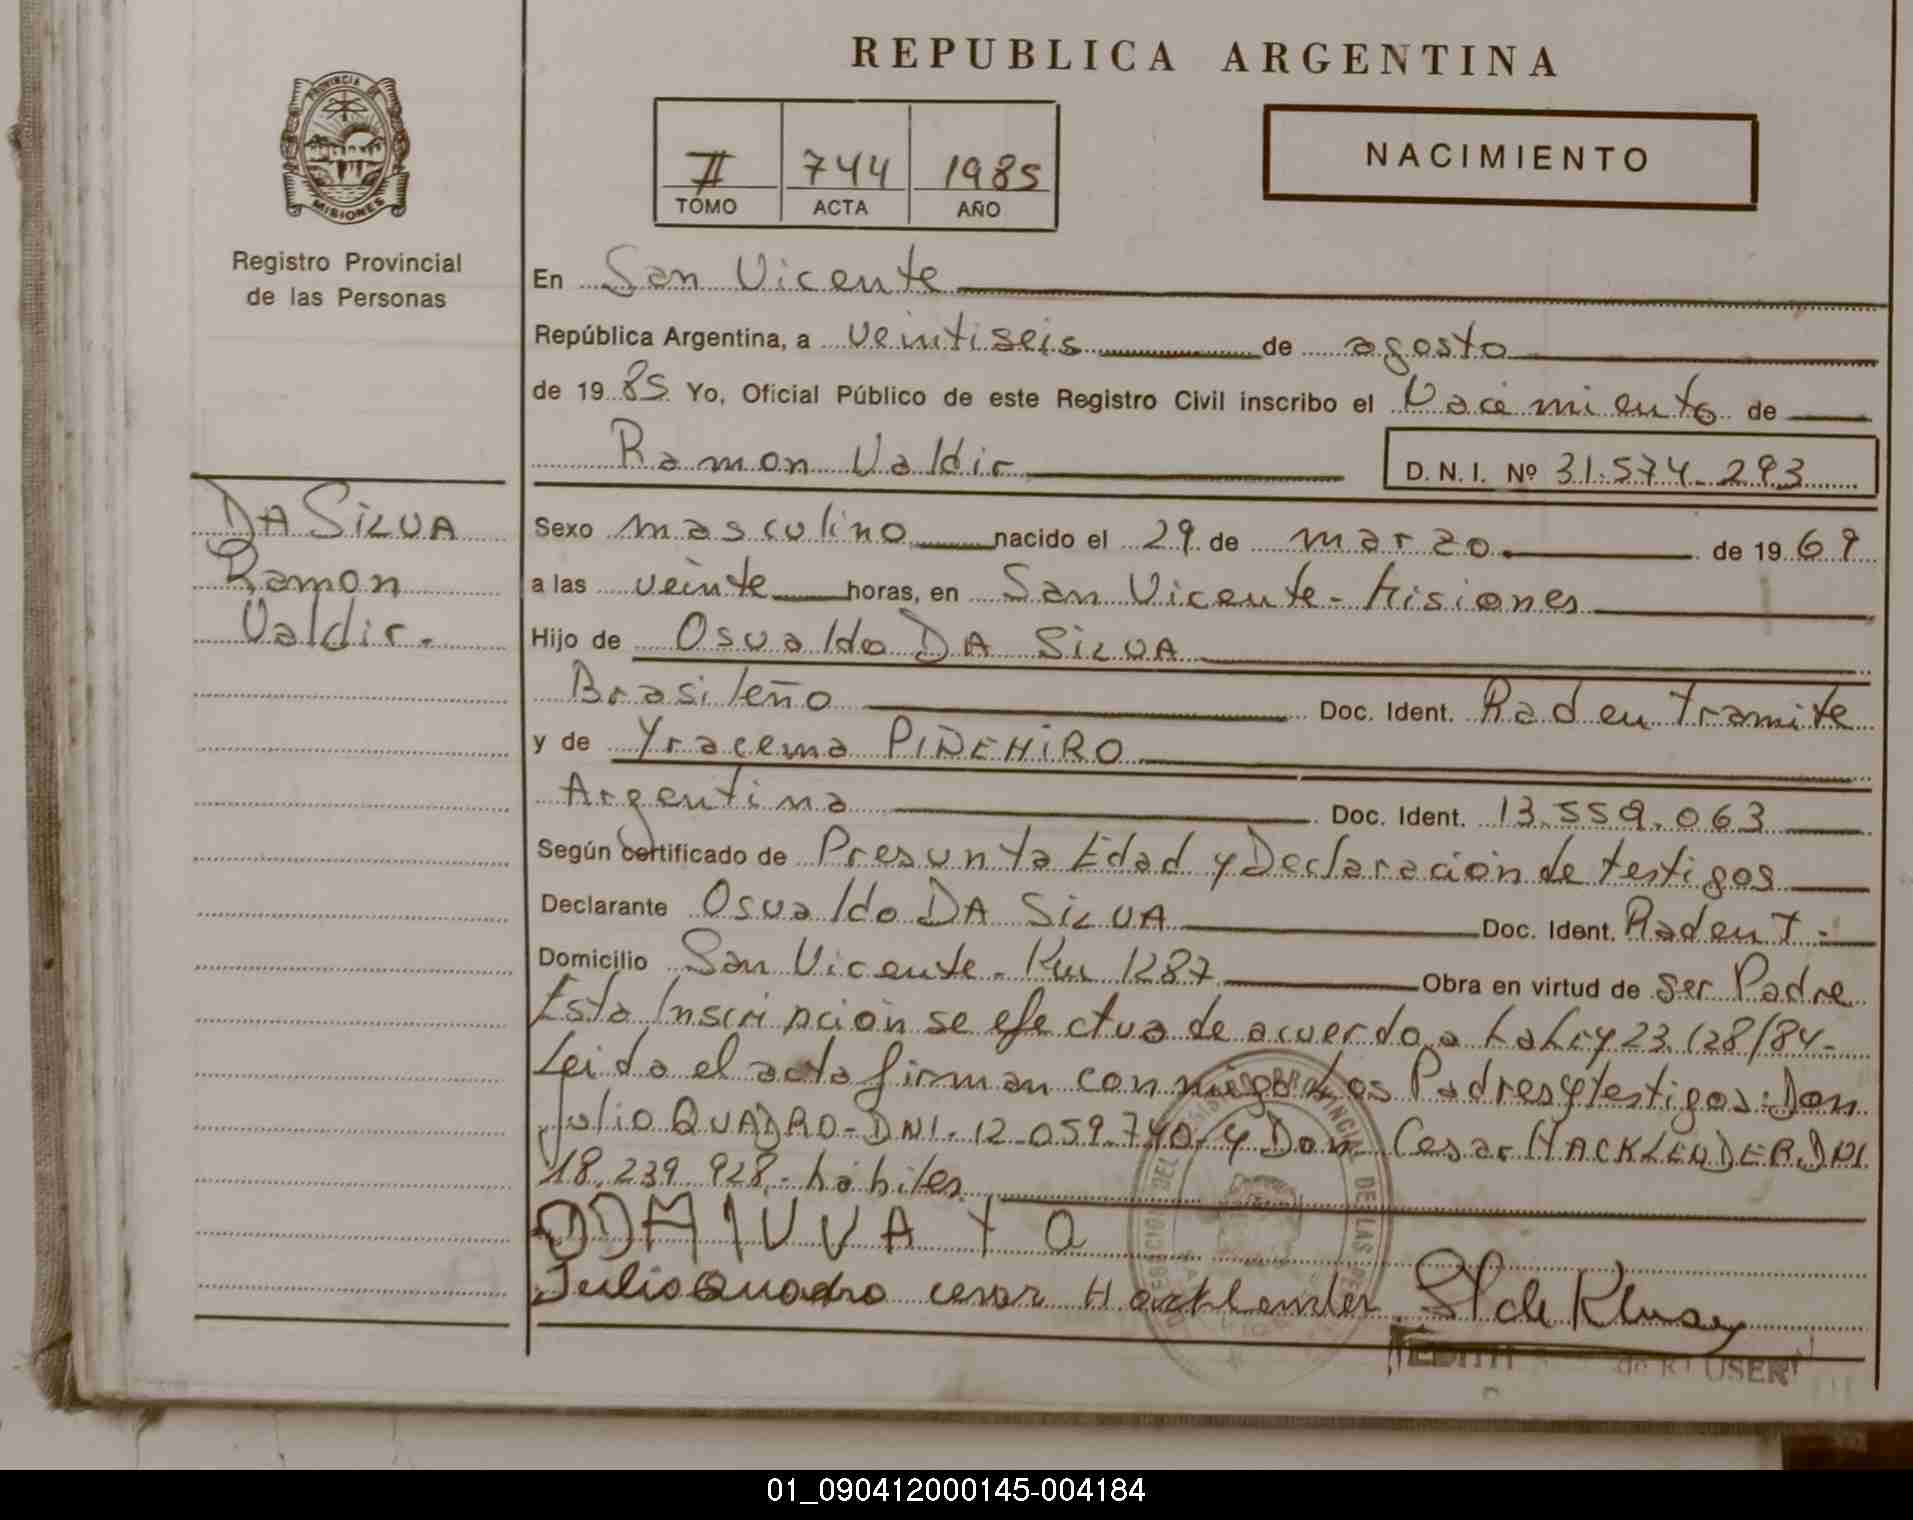 REPUBLICA ARGENTINA
PROVINCIA DE
MISIONES
Registro Provincial
de las Personas
II 744 1985
TOMO ACTA AÑO
NACIMIENTO
En San Vicente
República Argentina, a veintiseis de agosto
de 1985 Yo, Oficial Público de este Registro Civil inscribo el Nacimiento de
Ramon Valdir
D. N. I. Nº 31.574.293
DA SILVA
Ramon
Valdir.
Sexo masculino nacido el 29 de marzo de 1969
a las veinte horas, en San Vicente - Misiones
Hijo de Osvaldo DA SILVA
Brasileño Doc. Ident. Rad en tramite
y de Yracema PIÑEHIRO
Argentina Doc. Ident. 13.559.063
Según certificado de Presunta Edad y Declaración de testigos
Declarante Osvaldo DA SILVA Doc. Ident. Rad en T.
Domicilio San Vicente - Km 1287 Obra en virtud de ser Padre
Esta Inscripción se efectua de acuerdo a La Ley 23.128/84-
Leida el acta firman conmigo Los Padres y testigos: Don
Julio QUADRO - DNI - 12.059.740 y Don Cesar HACKLENDER DNI
18.239.928 - habiles
Julio Quadro cesar Hacklender St de Kluser
EDITH de KLUSER
01_090412000145-004184